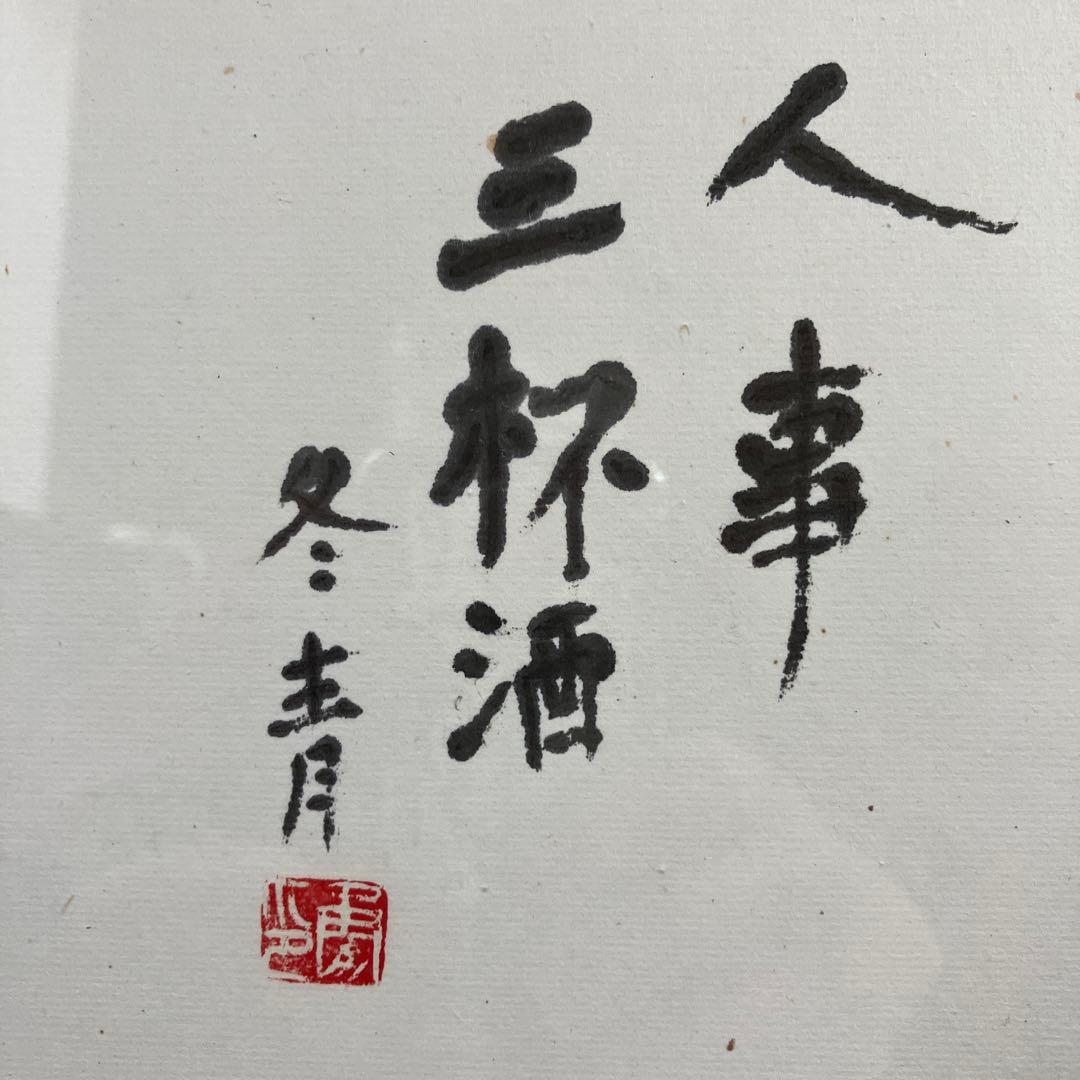 人事
三杯酒
冬青